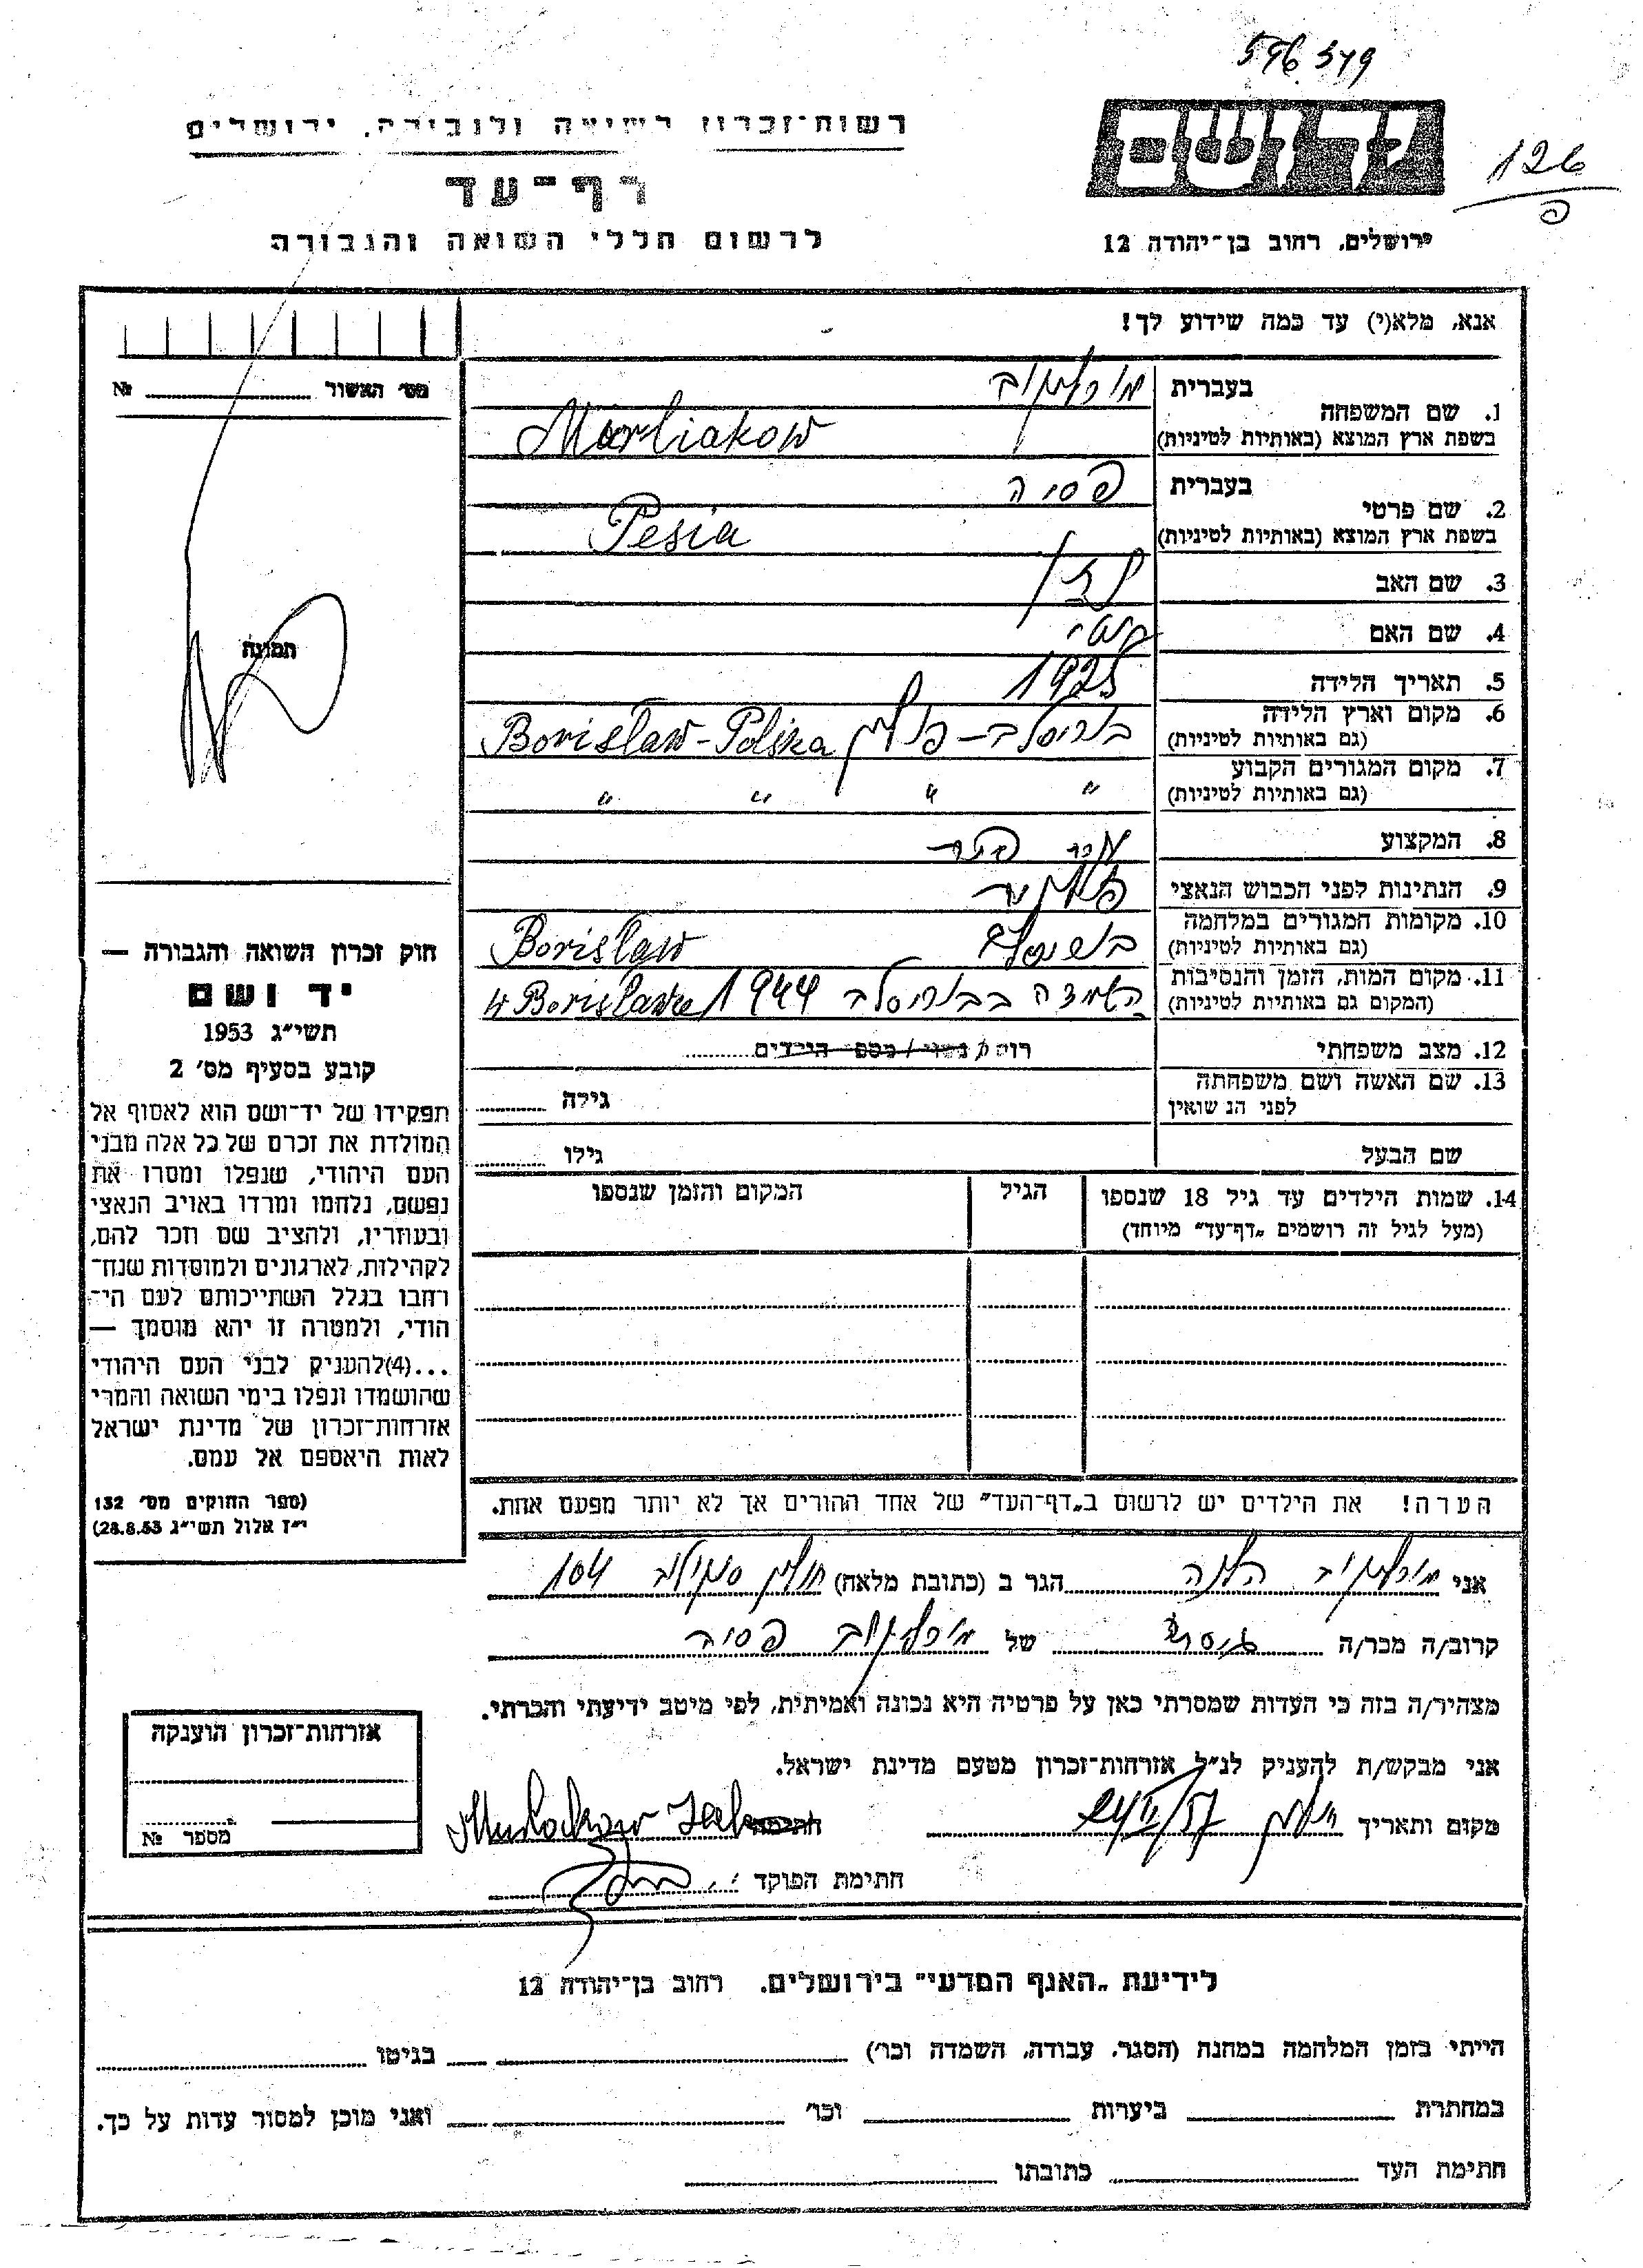 596379
יד ושם
126
רשות־זכרון לשואה ולגבורה, ירושלים
דף־עד
לרשום חללי השואה והגבורה
ירושלים, רחוב בן־יהודה 12
אנא, מלא(י) עד כמה שידוע לך!
מס' האשור № 
1. שם המשפחה בעברית
בשפת ארץ המוצא (באותיות לטיניות) Murliakow
2. שם פרטי בעברית פסיה
בשפת ארץ המוצא (באותיות לטיניות) Pesia
3. שם האב
4. שם האם
5. תאריך הלידה 1925
6. מקום וארץ הלידה בוריסלב – פולין Borisław - Polska
(גם באותיות לטיניות)
7. מקום המגורים הקבוע " " " "
(גם באותיות לטיניות)
8. המקצוע
9. הנתינות לפני הכבוש הנאצי פולנית
10. מקומות המגורים במלחמה Borisław
(גם באותיות לטיניות)
11. מקום המות, הזמן והנסיבות הושמדה בבוריסלב 1944 w Borisławie
(המקום גם באותיות לטיניות)
12. מצב משפחתי רוק/ נשוי / מספר הילדים
13. שם האשה ושם משפחתה
לפני הנשואין גילה
שם הבעל גילו
14. שמות הילדים עד גיל 18 שנספו הגיל המקום והזמן שנספו
(מעל לגיל זה רושמים „דף־עד" מיוחד)
הערה! את הילדים יש לרשום ב„דף־העד" של אחד ההורים אך לא יותר מפעם אחת.
תמונה
חוק זכרון השואה והגבורה —
יד ושם
תשי"ג 1953
קובע בסעיף מס' 2
תפקידו של יד־ושם הוא לאסוף אל
המולדת את זכרם של כל אלה מבני
העם היהודי, שנפלו ומסרו את
נפשם, נלחמו ומרדו באויב הנאצי
ובעוזריו, ולהציב שם וזכר להם,
לקהילות, לארגונים ולמוסדות שנח־
רבו בגלל השתייכותם לעם הי־
הודי, ולמטרה זו יהא מוסמך —
...(4)להעניק לבני העם היהודי
שהושמדו ונפלו בימי השואה והמרי
אזרחות־זכרון של מדינת ישראל
לאות היאספם אל עמם.
(ספר החוקים מס' 132
י"ז אלול תשי"ג 28.8.53)
אני הגר ב (כתובת מלאה) חולון 104
קרוב/ה מכר/ה גיסה של פסיה
מצהיר/ה בזה כי העדות שמסרתי כאן על פרטיה היא נכונה ואמיתית, לפי מיטב ידיעתי והכרתי.
אני מבקש/ת להעניק לנ"ל אזרחות־זכרון מטעם מדינת ישראל.
מקום ותאריך חולון חתימה
חתימת הפוקד
אזרחות־זכרון הוענקה
מספר №
לידיעת „האגף המדעי" בירושלים. רחוב בן־יהודה 12
הייתי בזמן המלחמה במחנה (הסגר, עבודה, השמדה וכו') בגיטו
במחתרת ביערות וכו' ואני מוכן למסור עדות על כך.
חתימת העד כתובתו